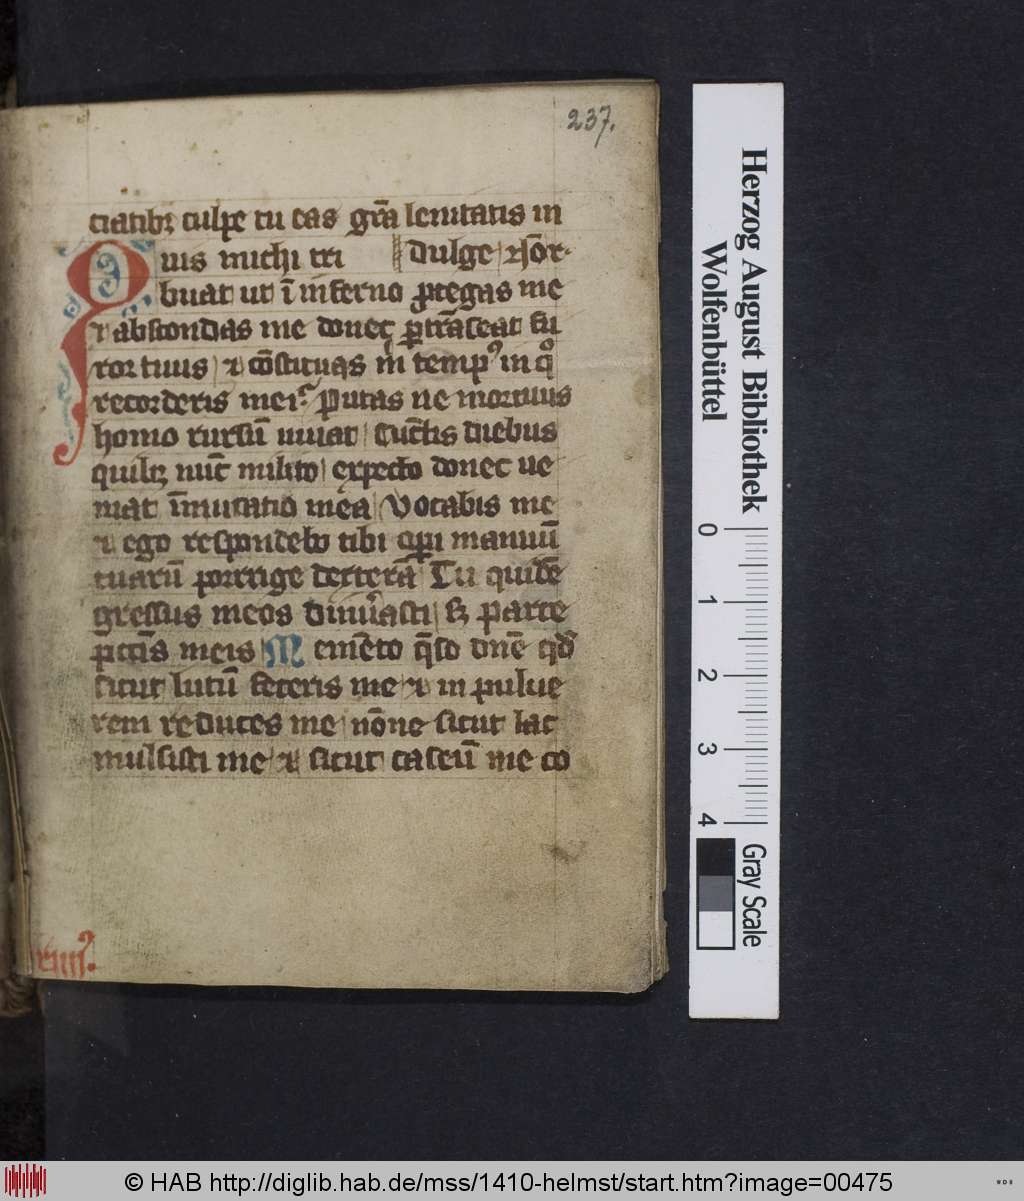 237.
ciatib₃ culpe tu eas gr̄a lenitatis in
Quis michi tri dulge ⁊ nōr
buat ut ī inferno ꝓtegas me
⁊ abscondas me donec ꝑtrāseat fu
ror tuus ⁊ cōstituas m̄ tempꝰ in qͦ
recorderis mei Putas ne mortuus
homo rursū uiuat Cūctis diebus
quib₃ nūc milito expecto donec ue
niat īmutatio mea Vocabis me
⁊ ego respondebo tibi oꝑi manuū
tuarū porrige dexterā Tu quidē
gressus meos dinūasti s₃ parce
pctīs meis Memēto q̄so dn̄e qd̄
sicut lutū feceris me ⁊ in pulue
rem reduces me nōne sicut lac
mulsisti me ⁊ sicut caseū me co
Herzog August Bibliothek
Wolfenbüttel
0 1 2 3 4
Gray Scale
© HAB http://diglib.hab.de/mss/1410-helmst/start.htm?image=00475